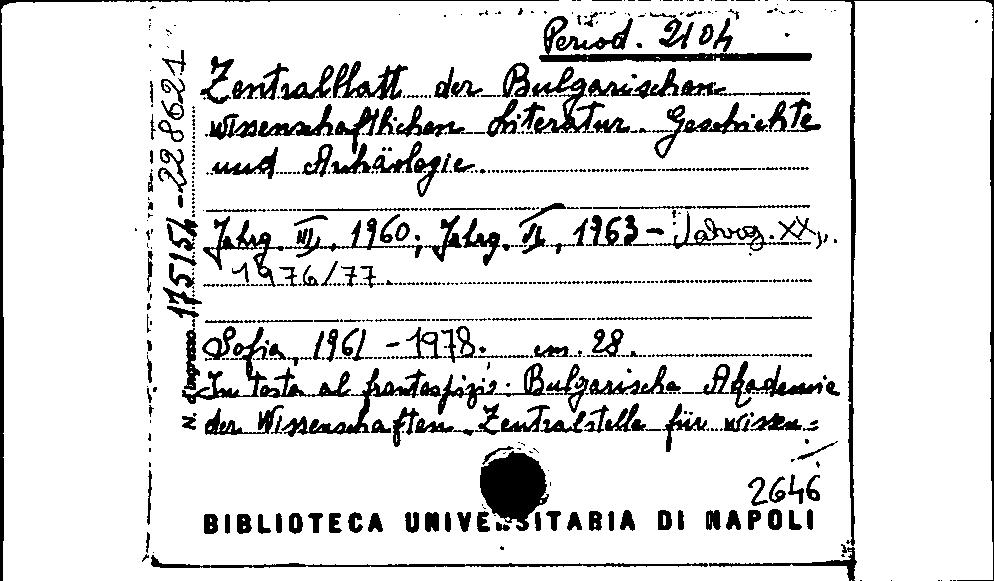 Period. 2104
Zentralblatt der Bulgarischen
wissenschaftlichen Literatur. Geschichte
und Archäologie.
Jahrg. III, 1960; Jahrg. VI, 1963 - Jahrg. XX,
1976/77.
Sofia, 1961 - 1978. cm. 28.
In testa al frontespizio: Bulgarische Akademie
der Wissenschaften. Zentralstelle für wissen=
2646
BIBLIOTECA UNIVERSITARIA DI NAPOLI
N. d'ingresso 175151-228621